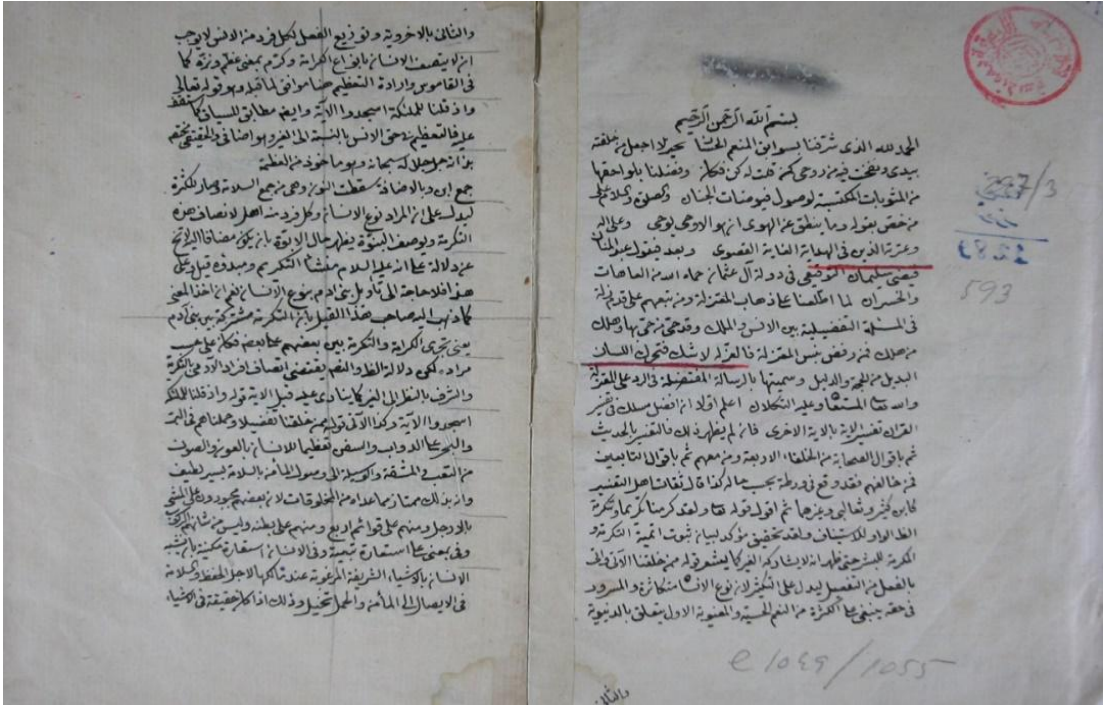 بسم الله الرحمن الرحيم
الحمد لله الذى شرفنا بسوابق المنعم الحنان بخير لا اجعل من خلقته
بيدى ونفخت فيه من روحى كمن قلت له كن فكان وفضلنا بلواحقها
من المثوبات المكتسبة لوصول فيوضات الجنان والصلوة والسلام على
من خص بقوله وما ينطق عن الهوى ان هو الا وحى يوحى وعلى اله
وعترة الذين فى الهداية الغاية القصوى وبعد فيقول عبد المنان
فيضى سليمان التوقيعى فى دولة آل عثمان حماه الله من العاهات
والخسران لما اطلعنا على ذهاب المعتزلة ومن تبعهم على قدم زلة
فى المسئلة التفضيلية بين الانس والملك وقد حى من حى بها وهلك
من هلك فنرفض بئس المعتزلة فالعزلة لا شك فتحرك اللسان
البديل من الحجة والدليل وسميتها بالرسالة المفضلة فى الرد على المعتزلة
والله تعالى المستعان وعليه التكلان اعلم اولا ان افضل مسلك فى تفسير
القران تفسير الاية بالاية الاخرى فان لم يظهر ذلك فالتفسير بالحديث
ثم باقوال الصحابة من الخلفاء الاربعة ومن معهم ثم باقوال التابعين
فمن خالفهم فقد وقع فى ورطة بحسب حاله كذا قال ثقات اهل التفسير
كابن كثير وثعالبى وغيرهما ثم اقول قوله تعالى ولقد كرمنا تكريما وتكرمة
الظ الواو للاستيناف ولقد تحقيق مؤكد لبيان ثبوت اتمية التكرمة و
المكرمة للبشر حتى ظهر انه لا يشاركه الغير كما يشعر قوله ممن خلقنا الآتى واتى
بالفعل من التفعيل ليدل على التكثير لان نوع الانسان متكاثرة والمسرود
فى حقه ينبئ على الكثرة من النعم الحسية والمعنوية الاول يتعلق بالدنيوية
والثانى
227/3
593
e 1049/1055
والثانى بالاخروية وتوزيع الفصل لكل فرد من الانس لا يوجب
ان لا يتصف الانسان بانواع الكرامة وكرم بمعنى عظم ونزه كما
فى القاموس وارادة التعظيم هنا موافق لما قبله وهو قوله تعالى
واذ قلنا للملئكة اسجدوا الآية وايضا مطابق للسياق كما ستقف
عليه فالتعظيم فى حق الانس بالنسبة الى الغير وهو اضافى والحقيقى مختص
بذاته جل جلاله سبحانه وهو مأخوذ من العظمة
جمع ابن وبالاضافة سقطت النون وهى جمع السلامة وصار للكثرة
ليدل على ان المراد نوع الانسان وكل فرد منه اهل لاتصاف هذه
التكرمة ولوصف البنوة يظهر حال الابوة بان يكون مضافا اليه
عن دلالة على انه عليه السلام منشأ التكريم ومبدؤه قبل وعلى
هذا فلا حاجة الى تأويل بنى ادم بنوع الانسان نعم ان اخذ المعنى
كما ذهب اليه صاحب هذا القيل بان التكرمة مشتركة بين بنى ادم
يعنى تجرى الكرامة والتكرمة بين بعضهم على بعض فكان على حسب
مراده لكن دلالة الظ والنظم يقتضى اتصاف افراد الادمى بالتكرمة
والشرف بالنظر الى الغير كما ينادى عليه قبل الاية قوله واذ قلنا للملئكة
اسجدوا الآية وكذا الآتى قوله ممن خلقنا تفضيلا وحملناهم فى البر
والبحر على الدواب والسفن تعظيما للانسان بالعون والصون
من التعب والمشقة والوسيلة الى وصول المأمن بالسلامة بسير لطيف
وانه بذلك ممتاز مما عداه من المخلوقات لان بعضهم مجبورون على المشى
بالارجل ومنهم على قوائم اربع ومنهم على بطنه وليس من شانهم الركوب
وفى بمعنى على استعارة تبعية وفى الانسان استعارة مكنية بان يشبه
الانسان بالاشياء الشريفة المرغوبة عند مالكها لاجل الحفظ والسلامة
فى الايصال الى المأمن والحمل تخييل وذلك اذا كان حقيقة فى الاشياء